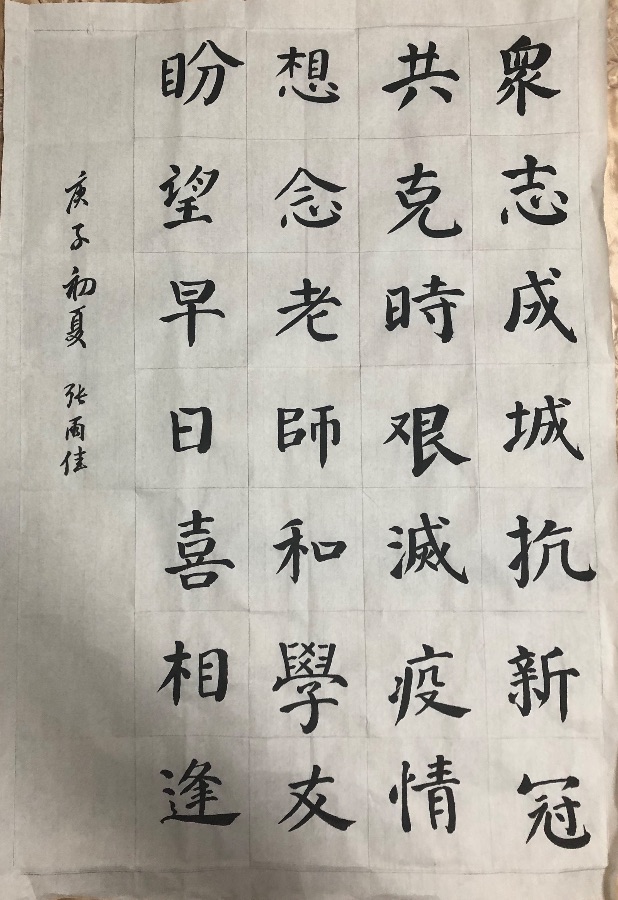 眾志成城抗新冠
共克時艱滅疫情
想念老師和學友
盼望早日喜相逢
庚子初夏 张雨佳